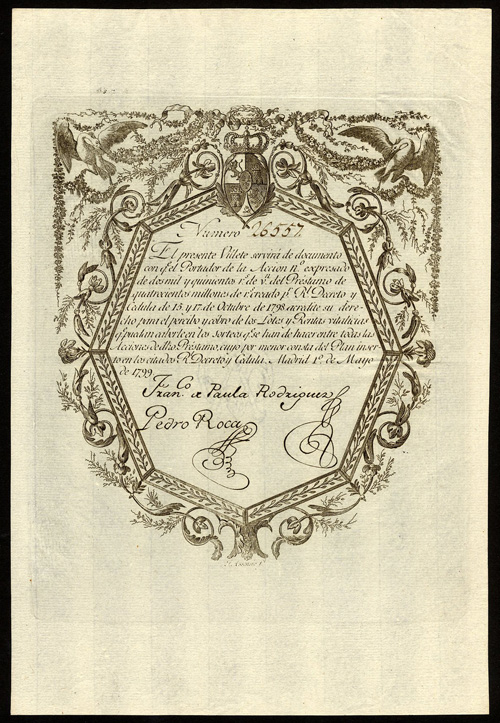 Numero 26557.
El present Villete servirá de documento
con q.e el Portador de la Accion n.o expresado
de dos mil y quinientos r.s de v.n del Préstamo de
quatrocientos millones de r.s creado p.r R.l Decreto y
Cédula de 15. y 17. de Octubre de 1798. acredite su dere-
cho para el percibo y cobro de los Lotes y Rentas vitalicias
q.e puedan caberle en los Sorteos q.e se han de hacer entre todas las
Acciones de dho Préstamo, cuyo por menor consta del Plan inser-
to en los citados R.l Decreto y Cédula. Madrid 1.o de Mayo
de 1799.
Fran.co de Paula Rodriguez
Pedro Roca